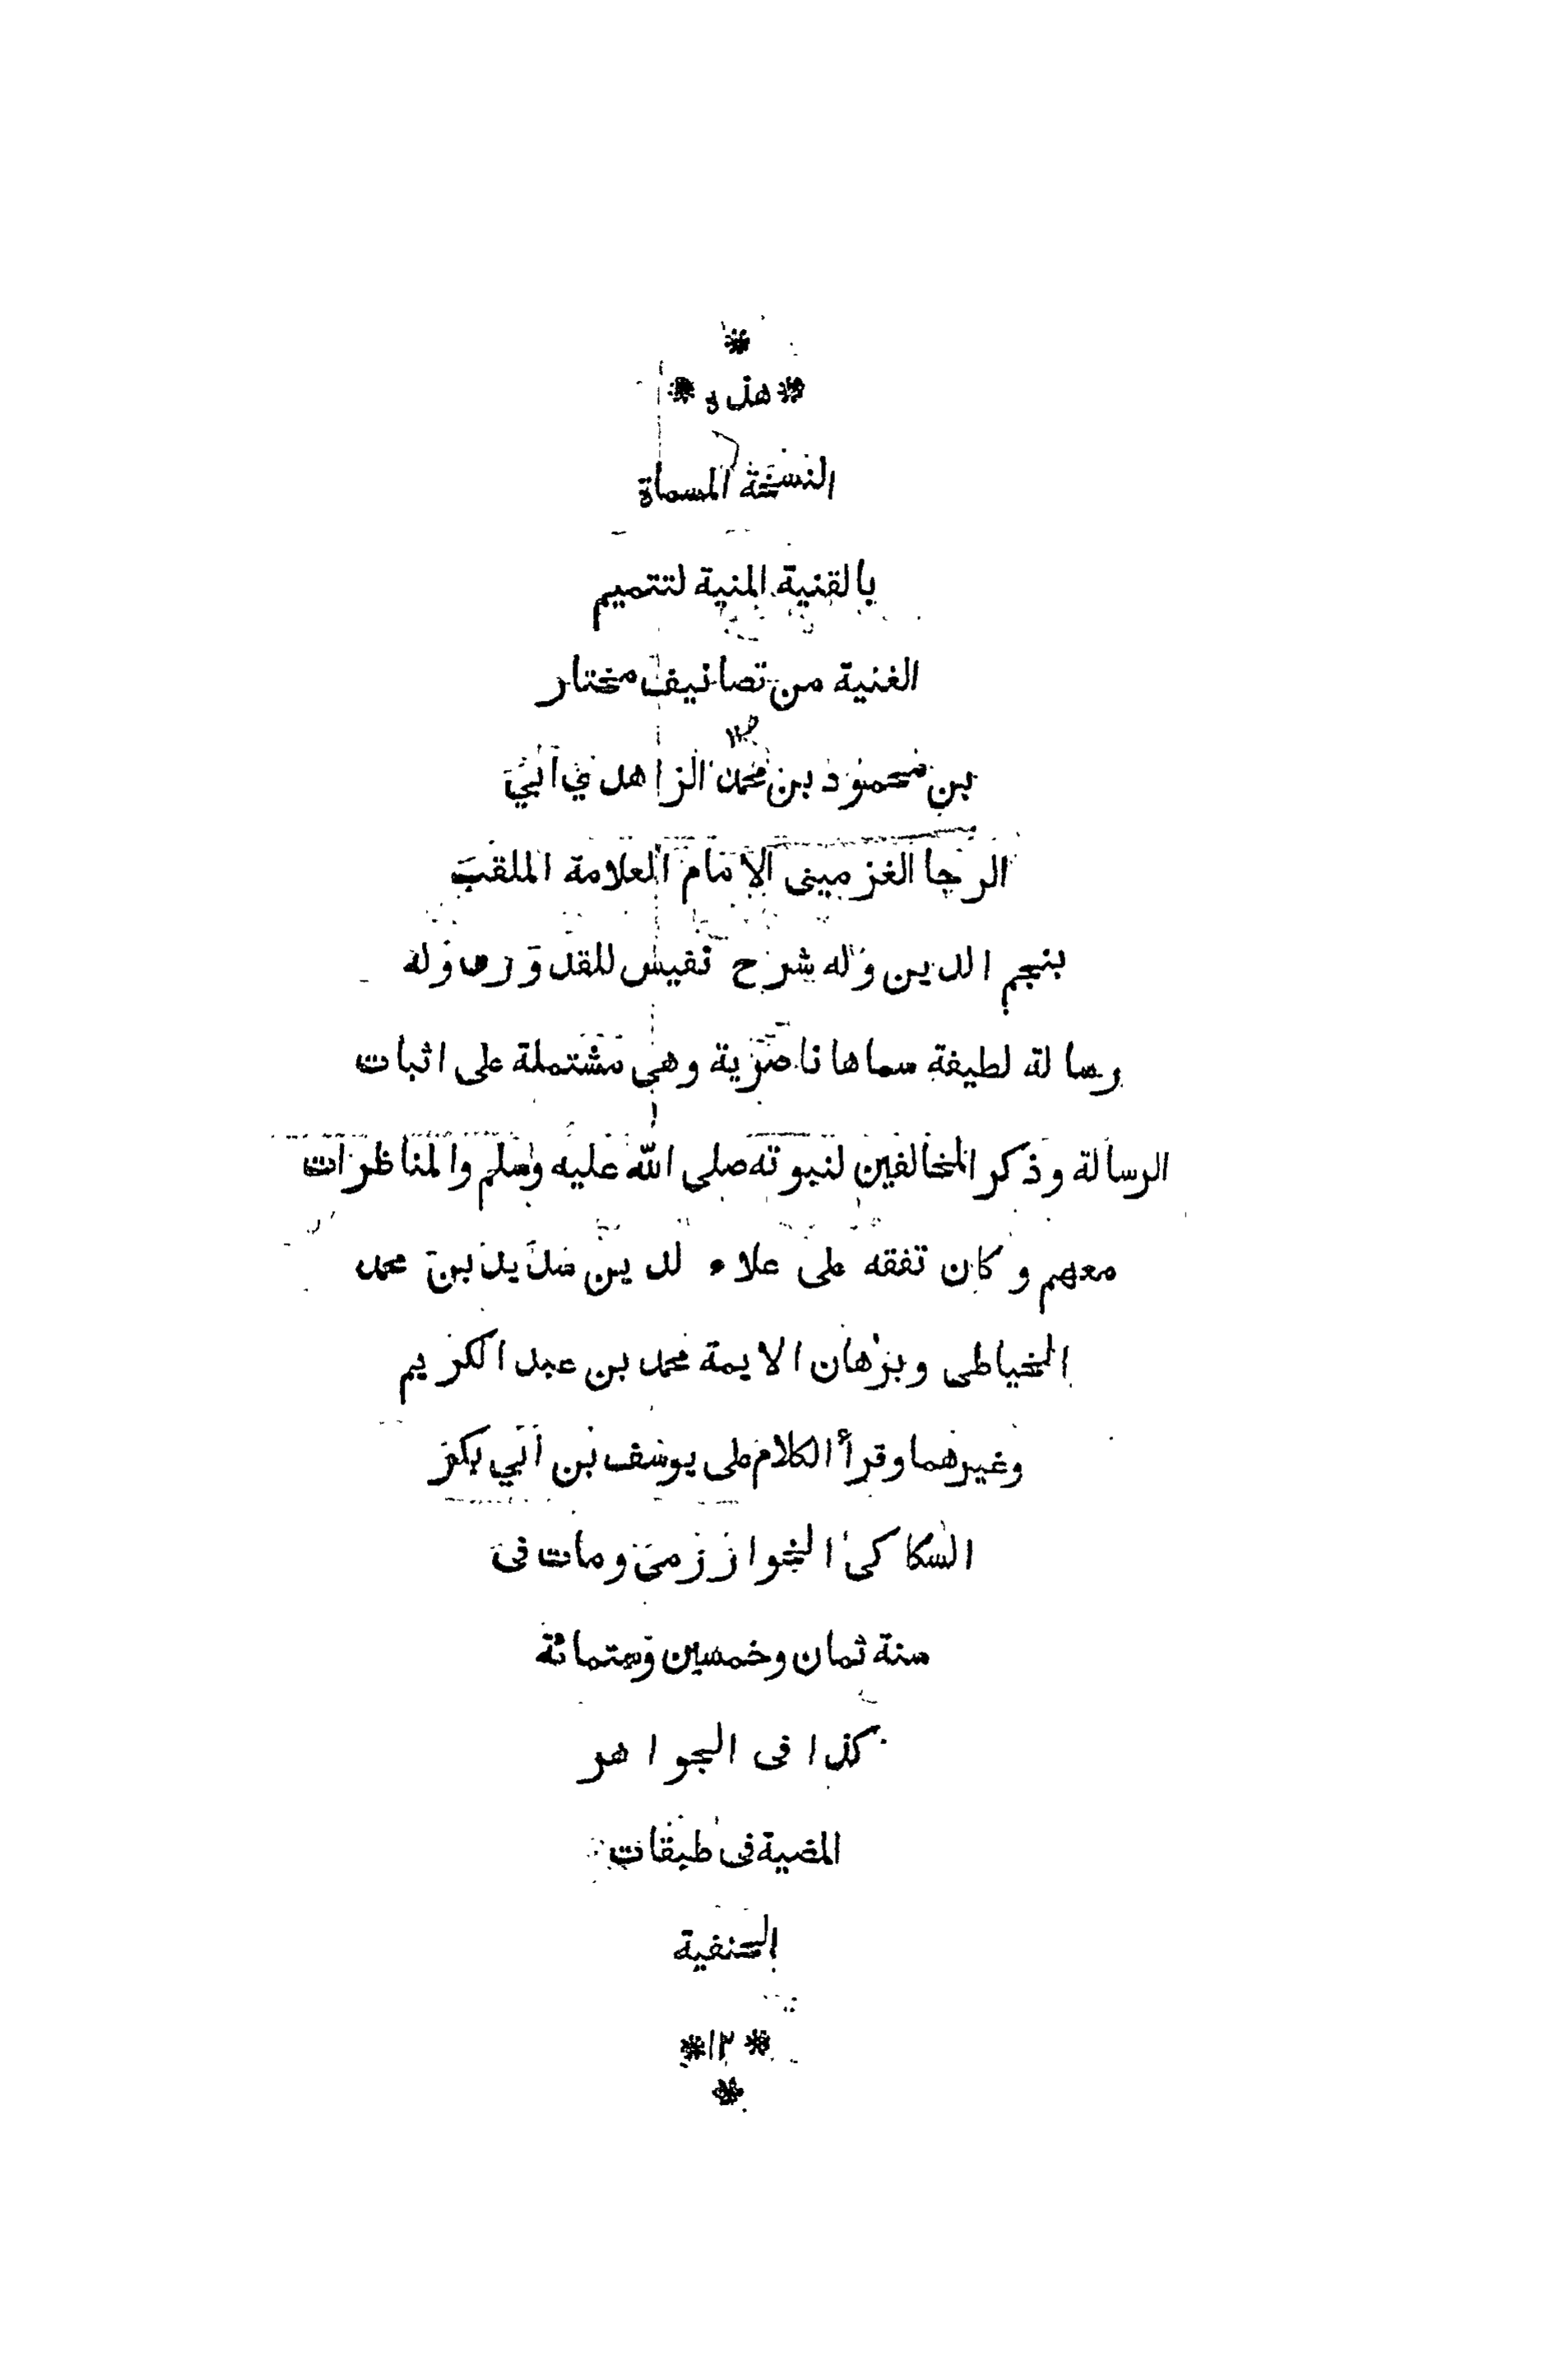 *
* هذه *
النسخة المسماة
بالقنية المنية لتتميم
الغنية من تصانيف مختار
بن محمود بن محمد الزاهدي ابي
الرجا الغزميني الامام العلامة الملقب
بنجم الدين وله شرح نفيس للقدوري وله
رسالة لطيفة سماها ناصرية وهى مشتملة على اثبات
الرسالة وذكر المخالفين لنبوته صلى الله عليه وسلم والمناظرات
معهم وكان تفقه على علاء لدين سديد بن محمد
الخياطى وبرهان الايمة محمد بن عبد الكريم
وغيرهما وقرأ الكلام على يوسف بن ابي بكر
السكاكى الخوارزمى ومات فى
سنة ثمان وخمسين وستمائة
كذا فى الجواهر
المضية فى طبقات
الحنفية
* ١٢ *
*